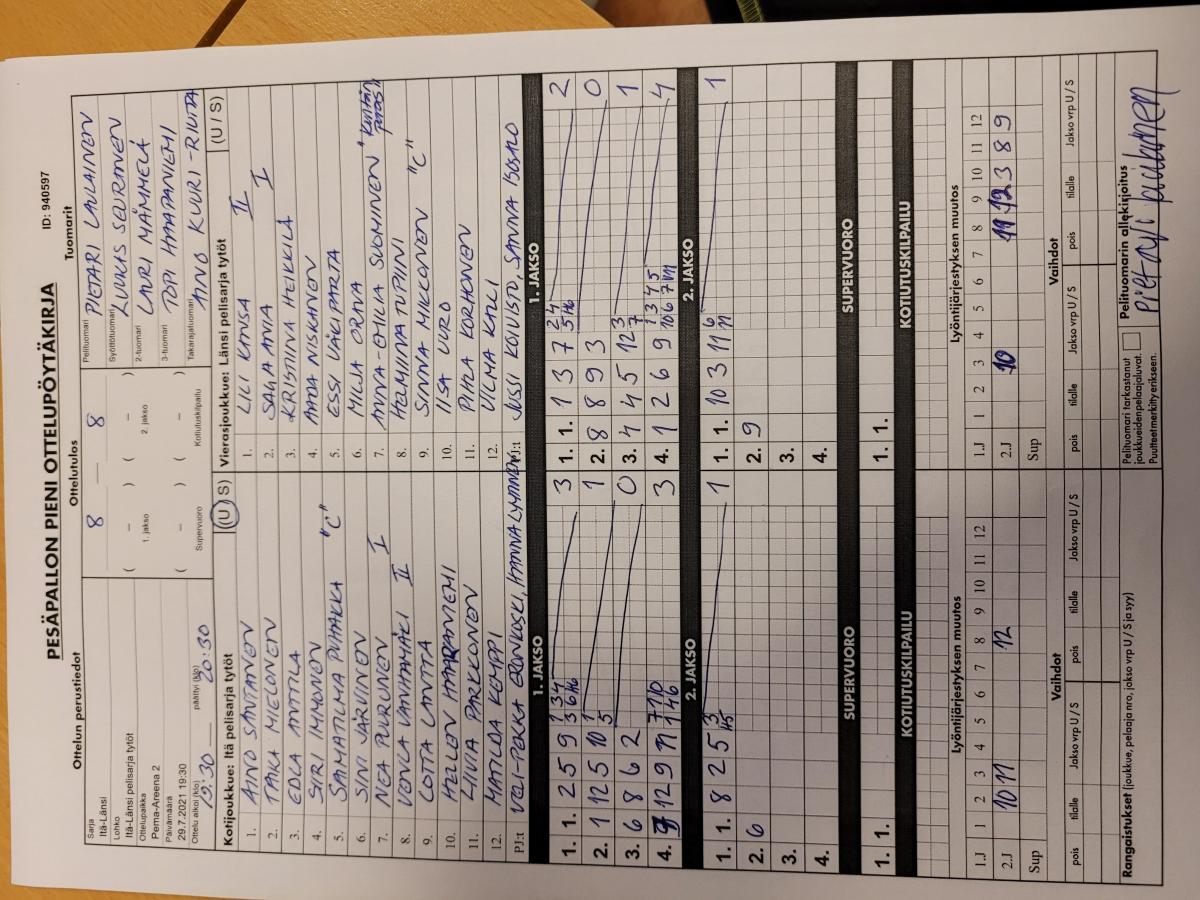 PESÄPALLON PIENI OTTELUPÖYTÄKIRJA
ID: 940597
Ottelun perustiedot
Ottelutulos
Tuomarit
Sarja
Itä-Länsi
Lohko
Itä-Länsi pelisarja tytöt
Ottelupaikka
Pema-Areena 2
Päivämäärä
29.7.2021 19:30
Ottelu alkoi (klo) päättyi (klo)
19:30 20:30
8 — 8
( – ) ( – )
1. jakso 2. jakso
( – ) ( – )
Supervuoro Kotiutuskilpailu
Pelituomari
PIETARI LAULAINEN
Syöttötuomari
LUUKAS SEURANEN
2-tuomari
LAURI NÄMMELÄ
3-tuomari
TOPI HAAPANIEMI
Takarajatuomari
AINO KUURI-RIUTTA
Kotijoukkue: Itä pelisarja tytöt (U / S)
1. AINO SANTANEN
2. TAIKA MIELONEN
3. EDLA ANTTILA
4. SIRI IMMONEN
5. SAIMATILMA PUHAKKA "C"
6. SINI JÄRVINEN
7. NEA PURUNEN I
8. VENLA VANHAMÄKI II
9. LOTTA LANTTA
10. HELLEN HAAPANIEMI
11. LIIVIA PARKKONEN
12. MATILDA KEMPPI
PJ:t VELI-PEKKA ERONKOSKI, HANNA LYYTINEN
Vierasjoukkue: Länsi pelisarja tytöt (U / S)
1. LILI KANSA II
2. SAGA ANIA I
3. KRISTIINA HEIKKILÄ
4. AADA NISKANEN
5. ESSI VÄKIPARTA
6. MILJA ORAVA
7. ANNA-EMILIA SUOMINEN "Kentän paras"
8. HELMIINA TUPIINI
9. SINNA MIKKONEN "C"
10. IISA UURO
11. PIHLA KORHONEN
12. VILMA KALLI
PJ:t JUSSI KOIVISTO, SANNA ISOSALO
1. JAKSO
1. 1. 2 5 9 1 3 4 3 6 H6 3
2. 1 12 5 10 1 5 1
3. 6 8 6 2 0
4. 9 12 9 11 7 1 10 1 4 6 3
1. JAKSO
1. 1. 1 3 7 2 4 5 H6 2
2. 8 8 9 3 0
3. 4 4 5 12 3 7 1
4. 1 2 6 9 1 3 4 5 10 6 7 H1 4
2. JAKSO
1. 1. 8 2 5 3 H5 1
2. 6
3.
4.
2. JAKSO
1. 1. 10 3 11 6 11 1
2. 9
3.
4.
SUPERVUORO
1. 1.
SUPERVUORO
1. 1.
KOTIUTUSKILPAILU
KOTIUTUSKILPAILU
Lyöntijärjestyksen muutos
1.J 1 2 3 4 5 6 7 8 9 10 11 12
2.J 10 11 12
Sup
Lyöntijärjestyksen muutos
1.J 1 2 3 4 5 6 7 8 9 10 11 12
2.J 10 11 12 3 8 9
Sup
Vaihdot
pois tilalle Jakso vrp U / S pois tilalle Jakso vrp U / S
Vaihdot
pois tilalle Jakso vrp U / S pois tilalle Jakso vrp U / S
Rangaistukset (joukkue, pelaaja nro, jakso vrp U / S ja syy)
Pelituomari tarkastanut
joukkueiden pelaajaluvat.
Puutteet merkitty erikseen.
Pelituomarin allekirjoitus